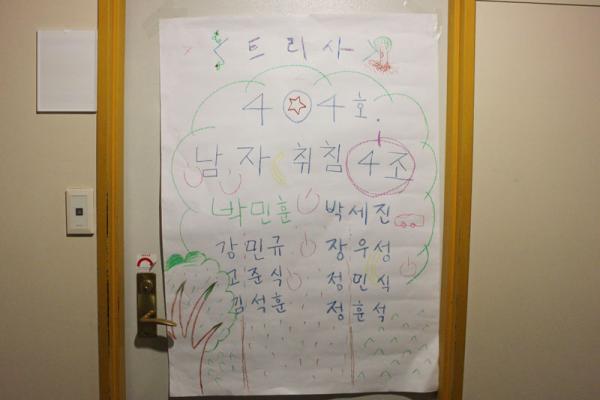 < 트리사 >
4 0 4호.
남자 취침 4조
박민훈 박세진
강민규 장우성
고준식 정민식
김석훈 정훈석